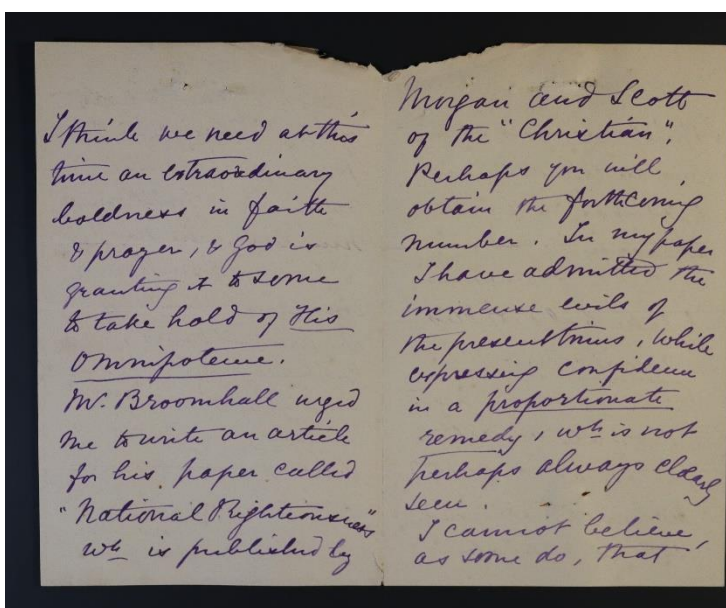 I think we need at this
time an extraordinary
boldness in faith
& prayer, & God is
granting it to some
to take hold of His
Omnipotence.
Mr. Broomhall urged
me to write an article
for his paper called
"National Righteousness"
wh is published by
Morgan and Scott
of the "Christian".
Perhaps you will
obtain the forthcoming
number. In my paper
I have admitted the
immense evils of
the present times, while
expressing confidence
in a proportionate
remedy, wh is not
perhaps always clearly
seen.
I cannot believe,
as some do, that